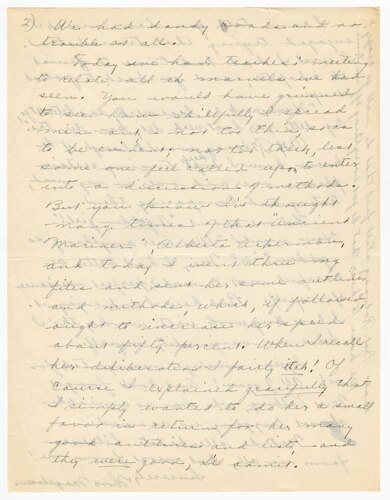 2) We had dandy roads and no
trouble at all.
Today we had teachers' meeting
to relate all the marvels we had
seen. You would have grinned
to see how skilfully I spread
mine out, not too thin, so as
to be evident; nor too thick, lest
some one feel called upon to enter
into a discussion of methods.
But you know I've thought
many times of that "Ancient
Mariner", Alberta
and today I went thru my
files and sent her some outlines
and methods, which, if followed,
ought to increase her speed
about fifty percent. When I recall
her deliberation I fairly itch! Of
course I explained gracefully that
I simply wanted to do her a small
favor in return for her many
good outlines and lists, and
they were good, I'll admit.